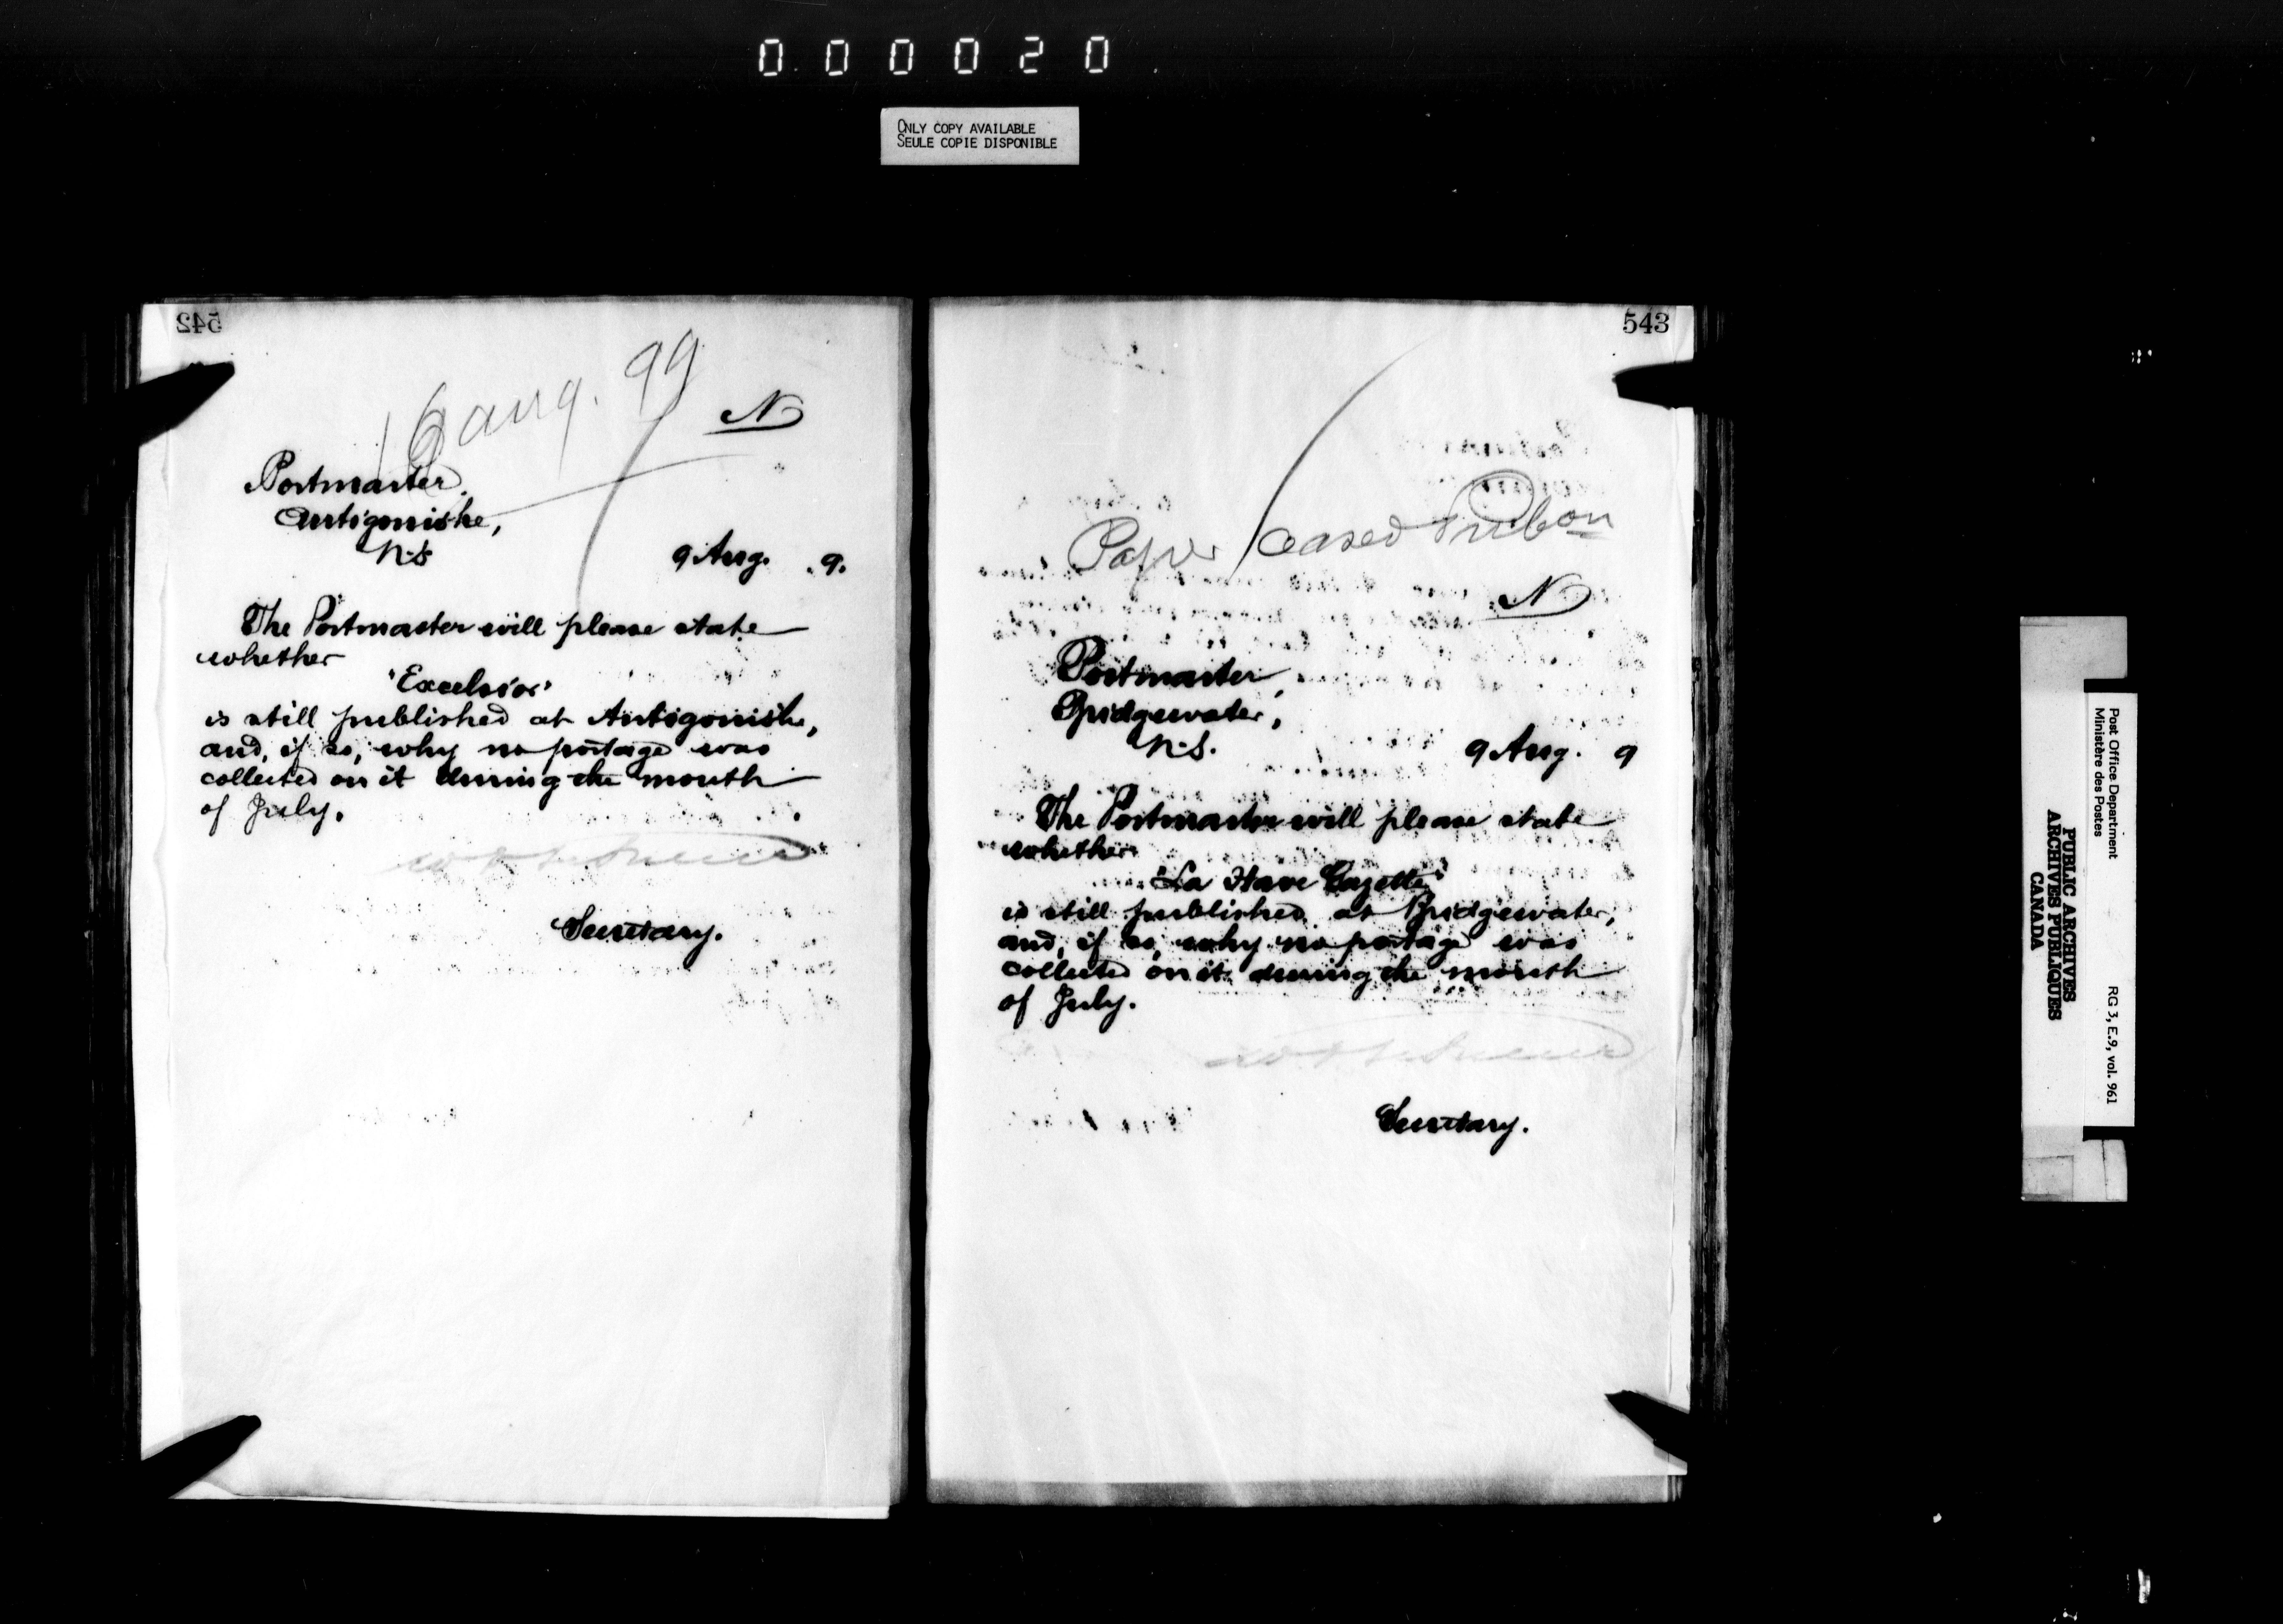 000020
ONLY COPY AVAILABLE
SEULE COPIE DISPONIBLE
542
16 Aug. 99
N
Postmaster,
Antigonishe,
N.S.
9 Aug. 9.
The Postmaster will please state
whether
'Excelsior'
is still published at Antigonishe,
and, if so, why no postage was
collected on it during the month
of July.
Secretary.
543
Paper ceased Pubon
N
Postmaster,
Bridgewater,
N.S.
9 Aug. 9
The Postmaster will please state
whether
'La Have Gazette'
is still published at Bridgewater,
and, if so, why no postage was
collected on it during the month
of July.
Secretary.
Post Office Department
Ministère des Postes
RG 3, E.9, vol. 961
PUBLIC ARCHIVES
ARCHIVES PUBLIQUES
CANADA